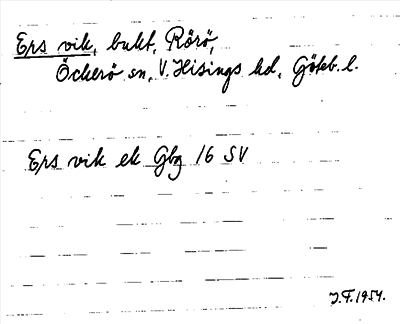 Eps vik, bukt, Rörö,
Öckerö sn, V. Hisings hd, Göteb. l.
Eps vik ek Gbg 16 SV
J.F. 1954.